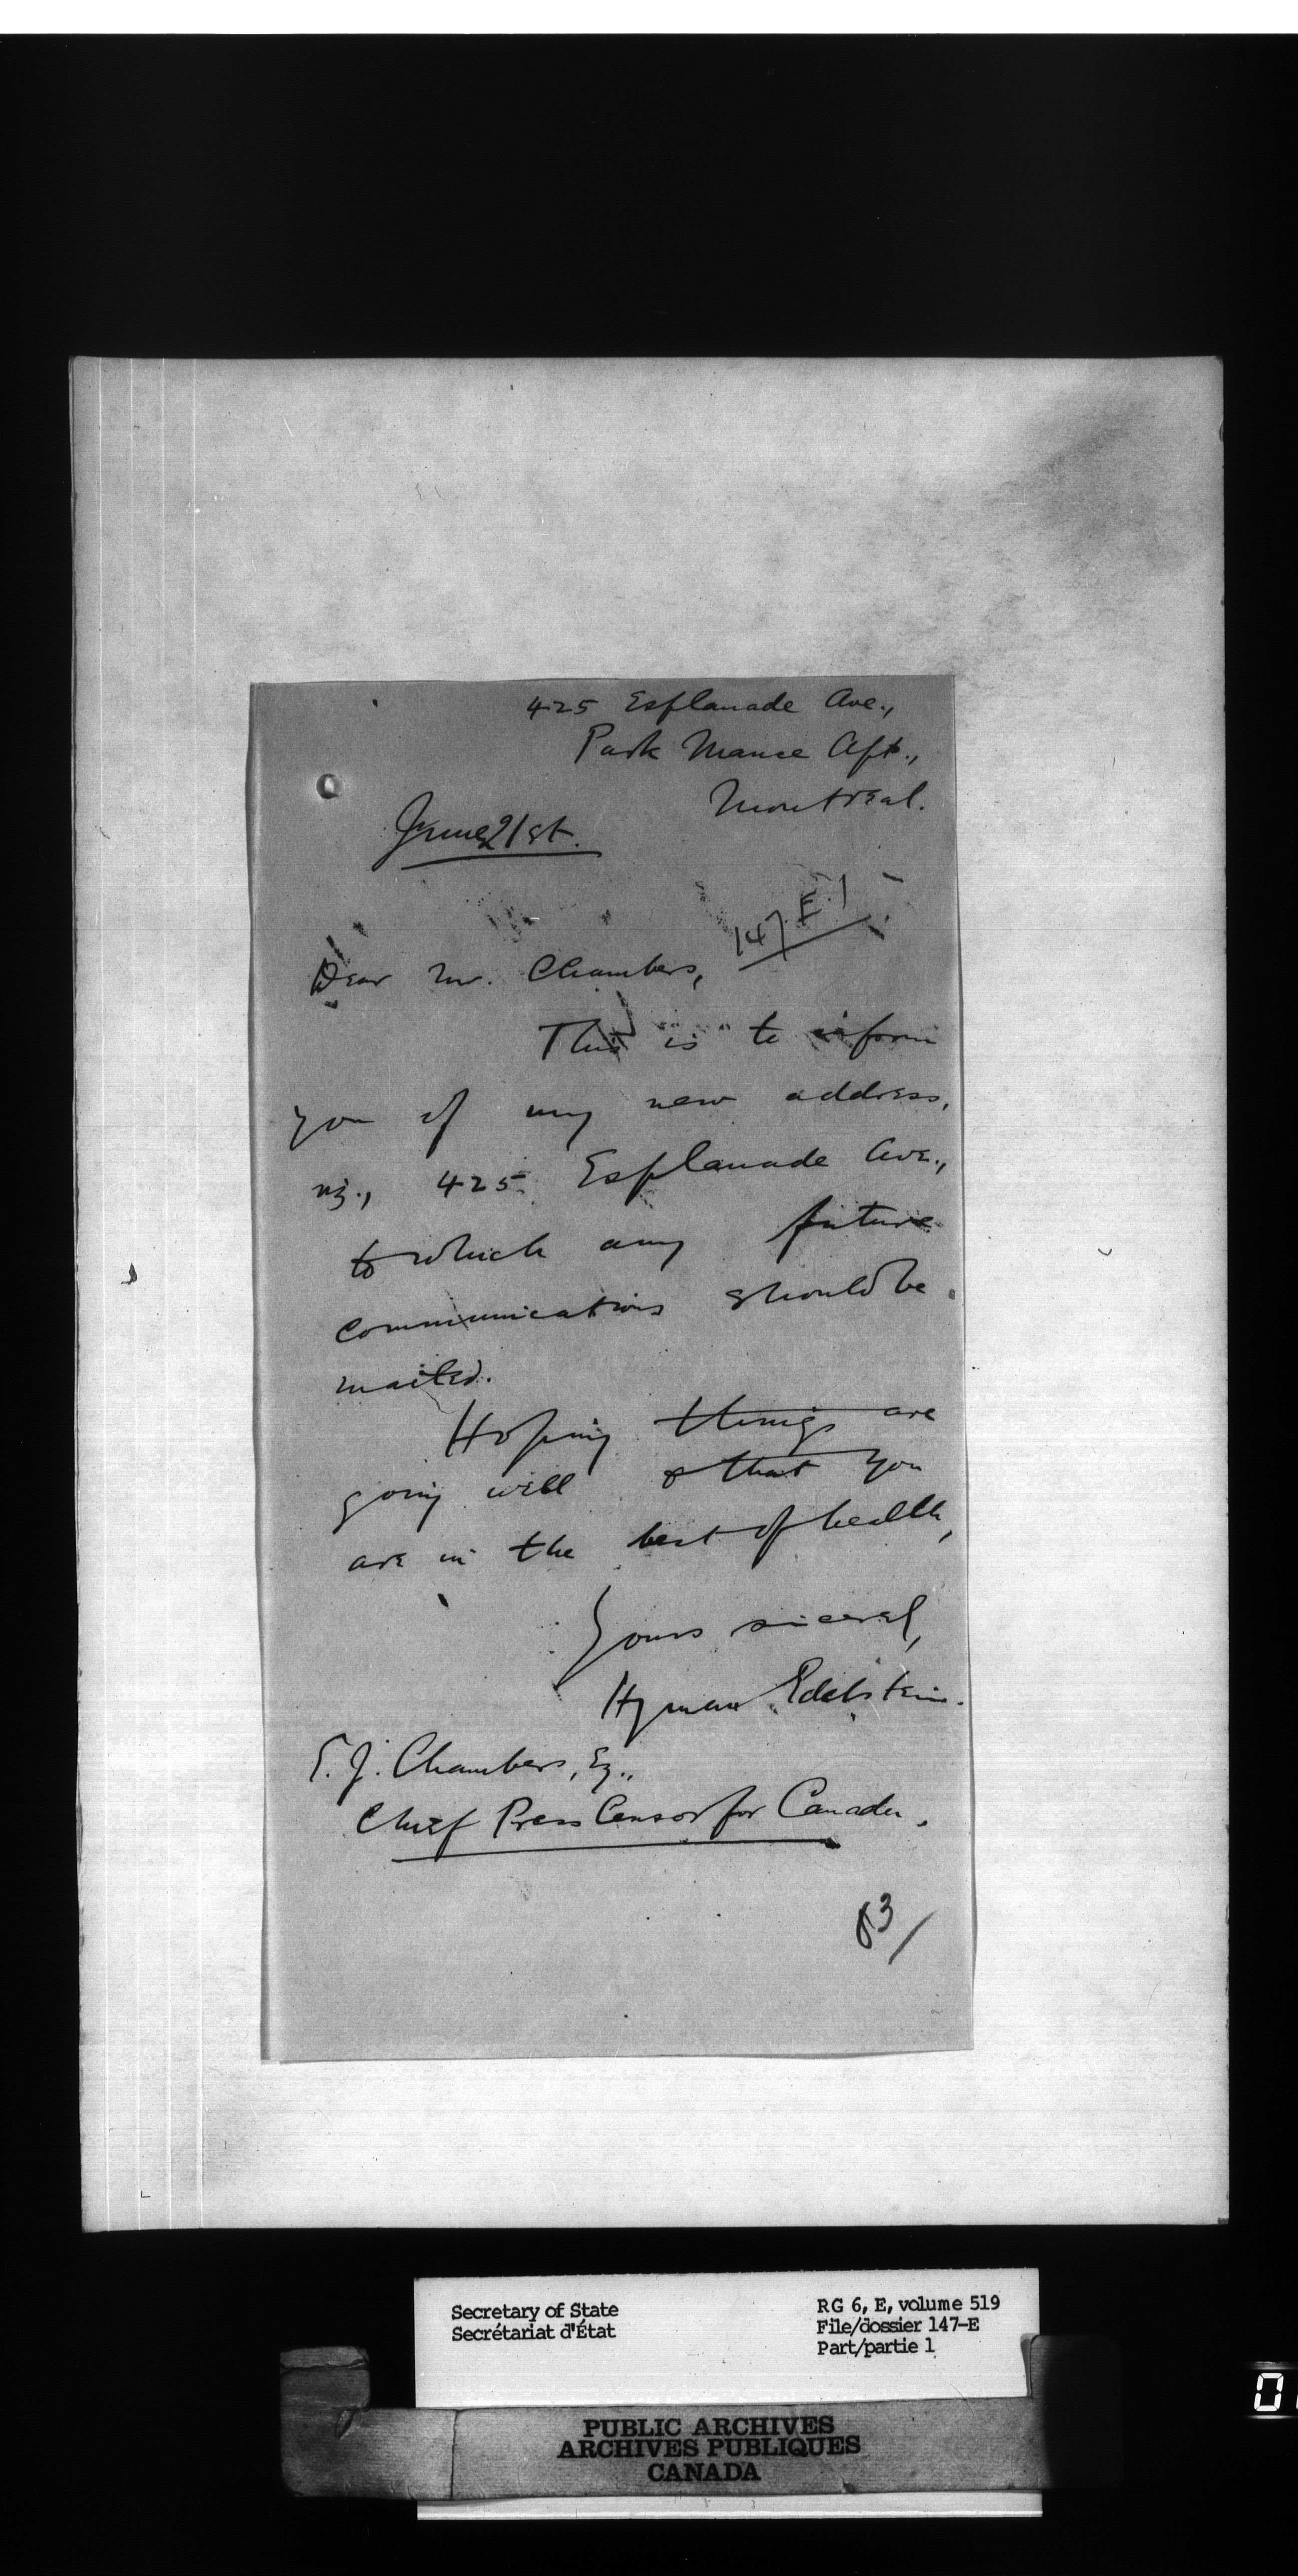 425 Esplanade Ave.,
Park Mance Apt.,
Montreal.
June 21st.
147.E.1
Dear Mr. Chambers,
This is to inform
you of my new address,
viz., 425 Esplanade Ave.,
to which any future
communications should be
mailed.
Hoping things are
going well & that you
are in the best of health,
Yours sincerel,
Hyman Edelstein.
E. J. Chambers, Esq.,
Chief Press Censor for Canada.
83/
Secretary of State
Secrétariat d'État
RG 6, E, volume 519
File/dossier 147-E
Part/partie 1
PUBLIC ARCHIVES
ARCHIVES PUBLIQUES
CANADA